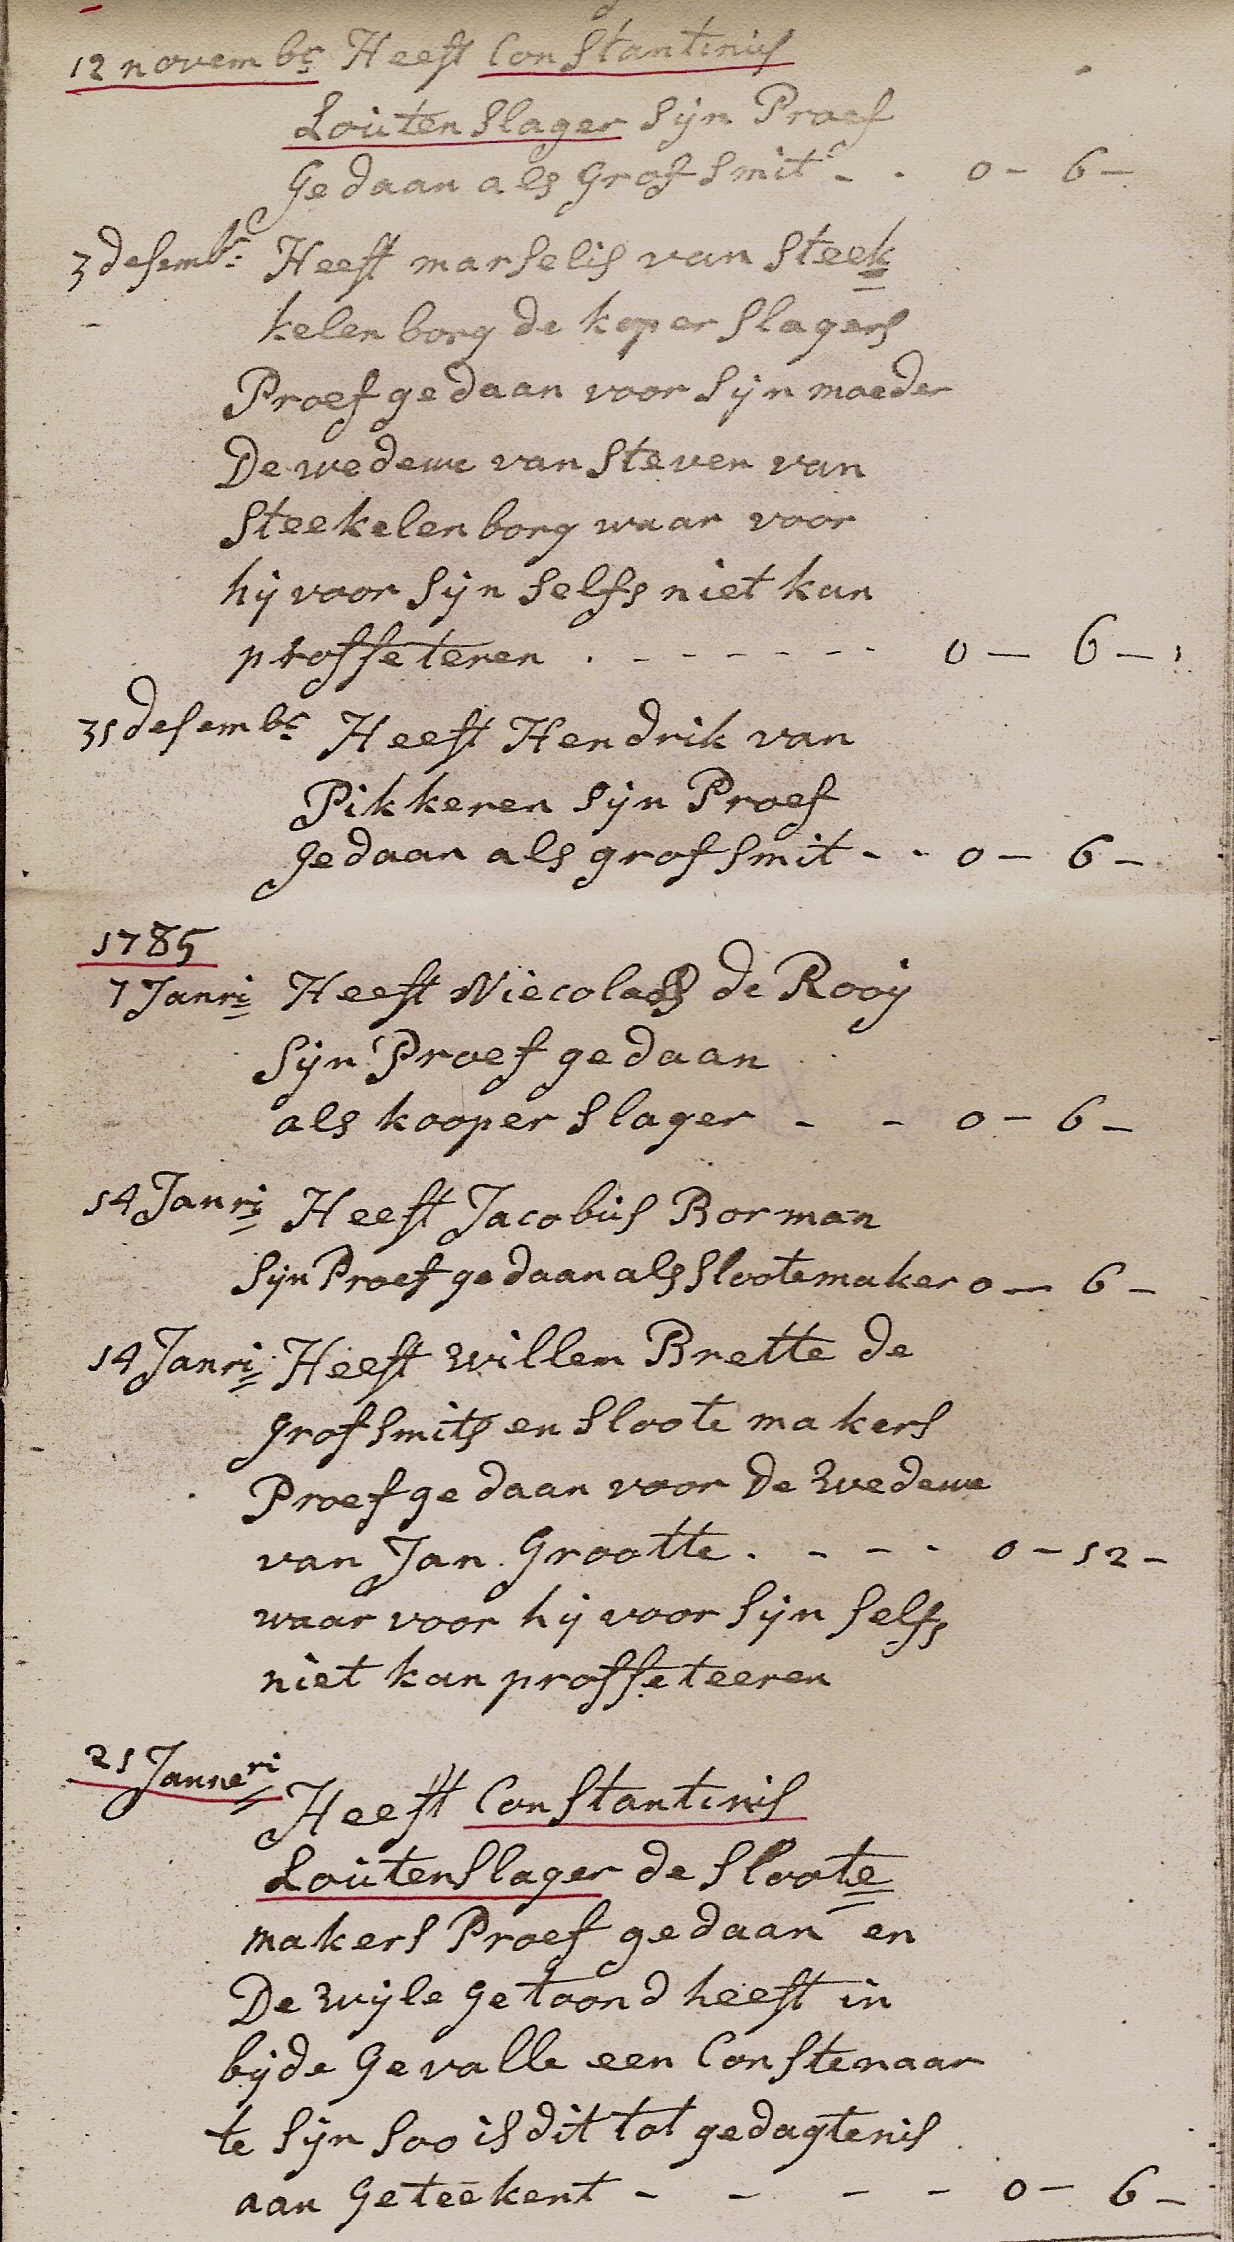 12 novembr Heeft Constantinus
Loutenslager Sijn Proef
Gedaan als Grof Smit - - 0 - 6 -
3 desembr: Heeft marselis van Steek
kelenborg de koperslagers
Proef gedaan voor Sijn moeder
De wedewe van Steven van
Steekelenborg waar voor
hij voor Sijn Selfs niet kan
proffeteren . - - - - - - 0 - 6 -
31 desembr: Heeft Hendrik van
Pikkeren Sijn Proef
gedaan als grofsmit - - 0 - 6 -
1785
7 Janri Heeft Niecolaas de Rooij
Sijn Proef gedaan
als kooperslager - - 0 - 6 -
14 Janri Heeft Jacobus Borman
Sijn Proef gedaan als Slootemaker 0 - 6 -
14 Janri Heeft Willem Brette de
grofsmits en Slootemakers
Proef gedaan voor de wedewe
van Jan Grootte . - - - 0 - 12 -
waar voor hij voor Sijn Selfs
niet kan proffeteeren
21 Janueri Heeft Constantinis
Loutenslager de Sloote
makers Proef gedaan en
De wijle getoond heeft in
bijde Gevalle een Constenaar
te Sijn Soo is dit tot gedagtenis
aan Geteekent - - - - 0 - 6 -